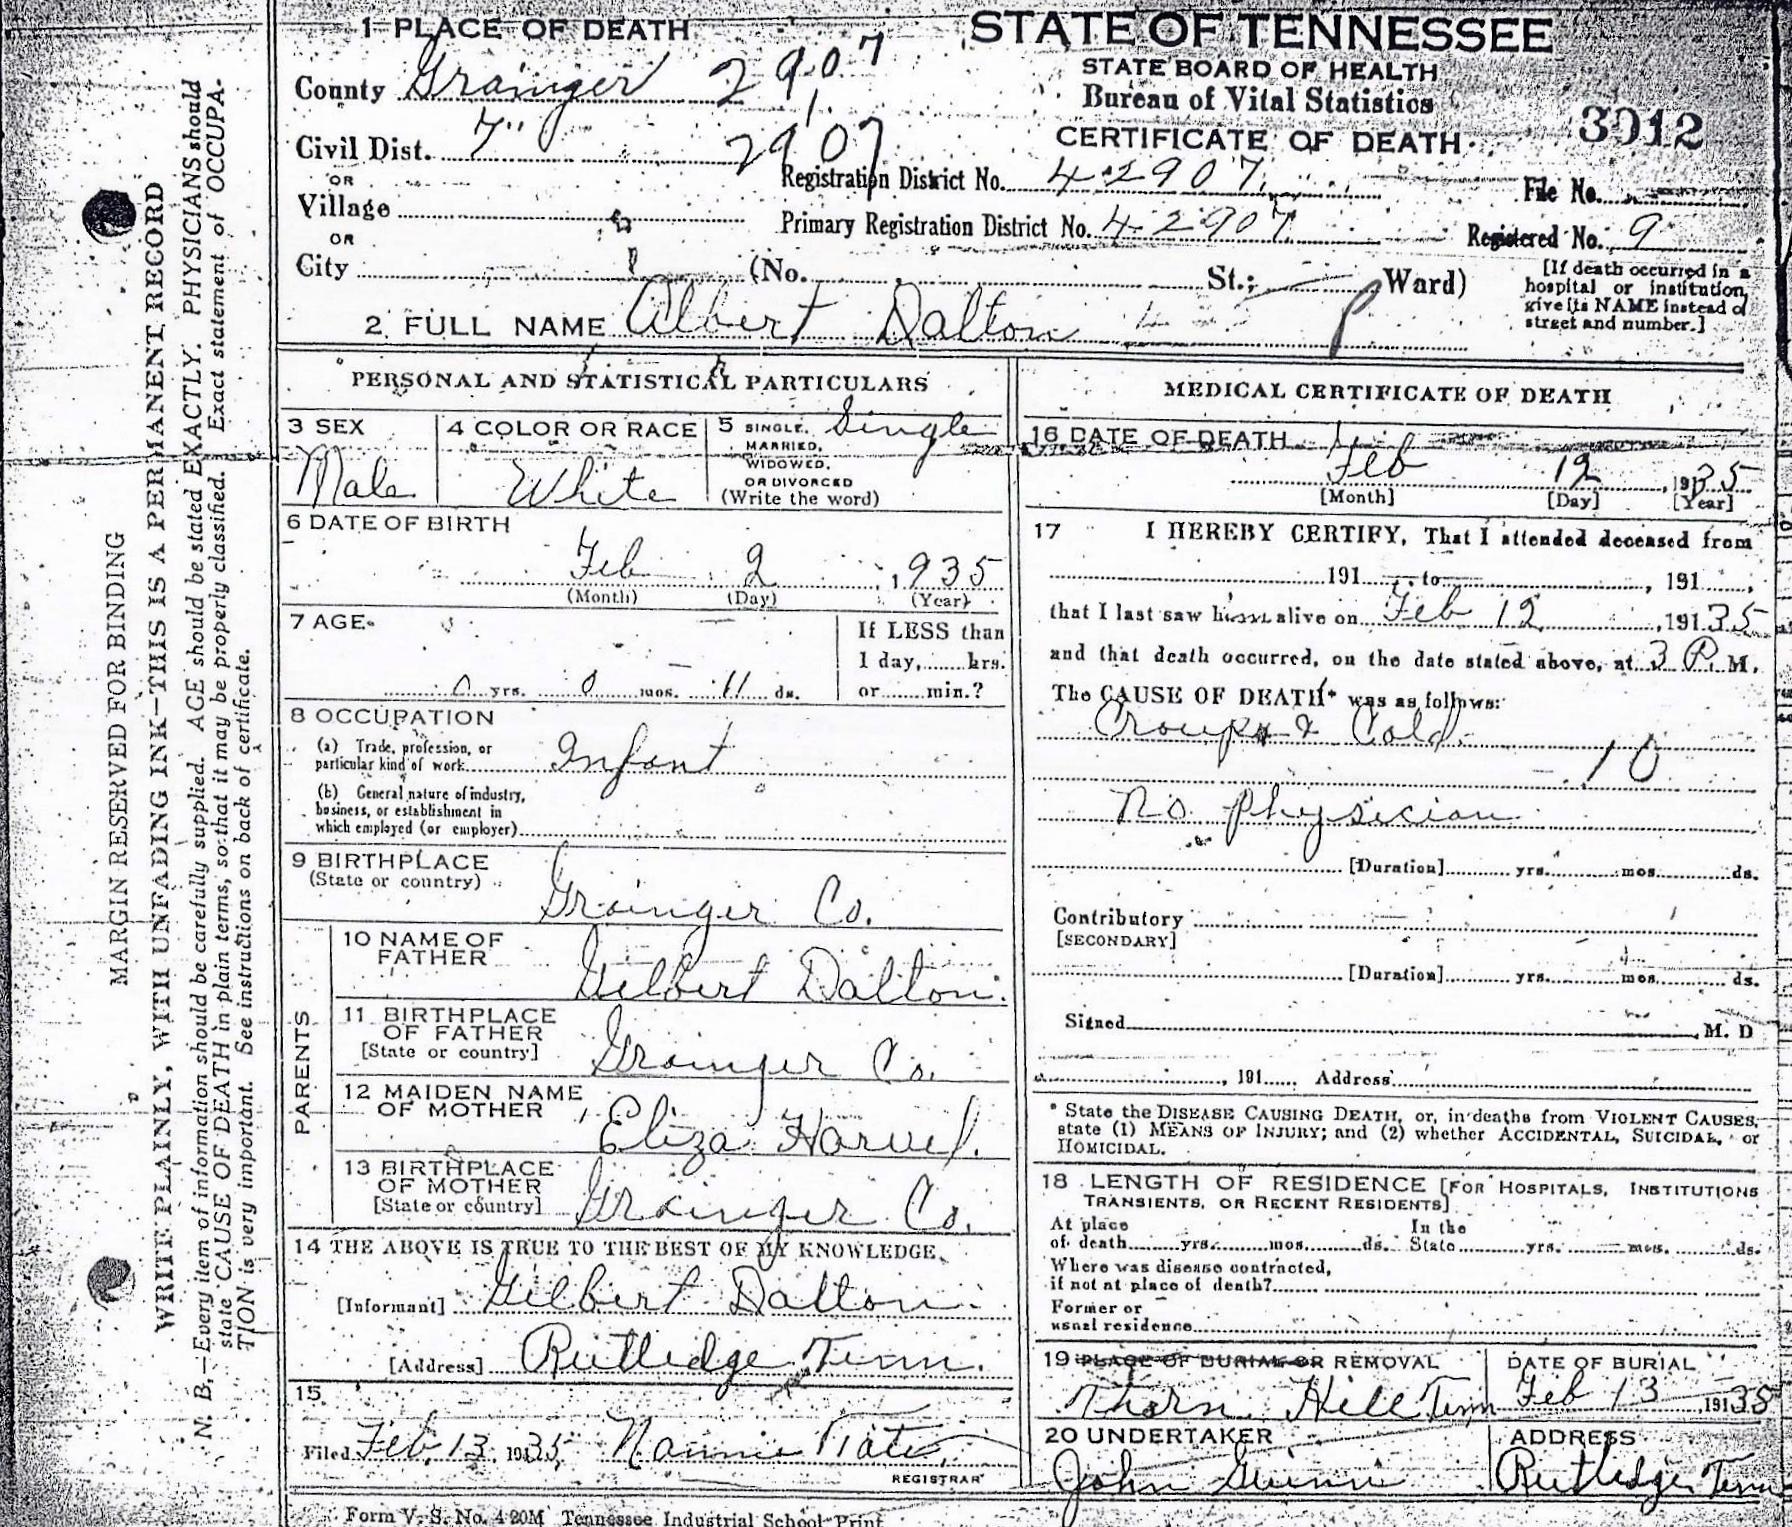 1 PLACE OF DEATH
STATE OF TENNESSEE
STATE BOARD OF HEALTH
Bureau of Vital Statistics
CERTIFICATE OF DEATH
3012
County Grainger 2907
Civil Dist. 7" 2907
OR
Village
OR
City (No. St.; Ward)
Registration District No. 42907 File No.
Primary Registration District No. 42907 Registered No. 9
[If death occurred in a
hospital or institution,
give its NAME instead of
street and number.]
2 FULL NAME Albert Dalton
PERSONAL AND STATISTICAL PARTICULARS
3 SEX
Male
4 COLOR OR RACE
White
5 SINGLE,
MARRIED,
WIDOWED,
OR DIVORCED
(Write the word)
Single
6 DATE OF BIRTH
Feb 2 , 935
(Month) (Day) (Year)
7 AGE
0 yrs. 0 mos. 11 ds.
If LESS than
1 day,......hrs.
or......min.?
8 OCCUPATION
(a) Trade, profession, or
particular kind of work Infant
(b) General nature of industry,
business, or establishment in
which employed (or employer)
9 BIRTHPLACE
(State or country)
Grainger Co.
PARENTS
10 NAME OF
FATHER
Gilbert Dalton.
11 BIRTHPLACE
OF FATHER
[State or country]
Grainger Co.
12 MAIDEN NAME
OF MOTHER
Eliza Harvel.
13 BIRTHPLACE
OF MOTHER
[State or country]
Grainger Co.
14 THE ABOVE IS TRUE TO THE BEST OF MY KNOWLEDGE.
[Informant] Gilbert Dalton.
[Address] Rutledge, Tenn.
15
Filed Feb. 13, 19135 Nannie Tate
REGISTRAR
Form V. S. No. 4 20M Tennessee Industrial School Print
MEDICAL CERTIFICATE OF DEATH
16 DATE OF DEATH
Feb 12 , 19135
[Month] [Day] [Year]
17 I HEREBY CERTIFY, That I attended deceased from
191...., to , 191......,
that I last saw him alive on Feb 12 , 19135
and that death occurred, on the date stated above, at 3 P. M.
The CAUSE OF DEATH* was as follows:
Croup & Cold.
10
No physician
[Duration] yrs. mos. ds.
Contributory
[SECONDARY]
[Duration] yrs. mos. ds.
Signed , M. D
, 191...... Address
* State the DISEASE CAUSING DEATH, or, in deaths from VIOLENT CAUSES,
state (1) MEANS OF INJURY; and (2) whether ACCIDENTAL, SUICIDAL, or
HOMICIDAL.
18 LENGTH OF RESIDENCE [FOR HOSPITALS, INSTITUTIONS
TRANSIENTS, OR RECENT RESIDENTS]
At place In the
of death yrs. mos. ds. State yrs. mos. ds.
Where was disease contracted,
if not at place of death?
Former or
usual residence
19 PLACE OF BURIAL OR REMOVAL
Thorn Hill Tenn
DATE OF BURIAL
Feb 13 , 19135
20 UNDERTAKER
John
ADDRESS
Rutledge, Tenn
MARGIN RESERVED FOR BINDING
WRITE PLAINLY, WITH UNFADING INK—THIS IS A PERMANENT RECORD
N. B.—Every item of information should be carefully supplied. AGE should be stated EXACTLY. PHYSICIANS should
state CAUSE OF DEATH in plain terms, so that it may be properly classified. Exact statement of OCCUPA-
TION is very important. See instructions on back of certificate.